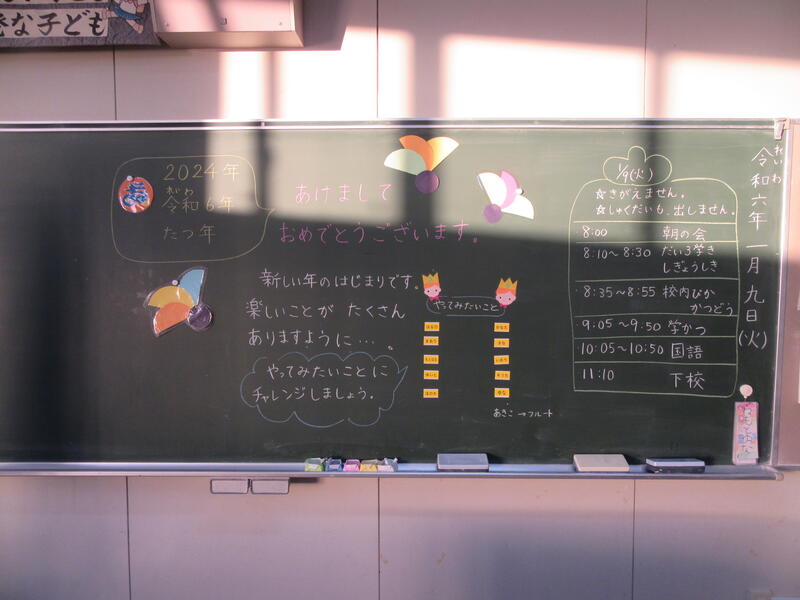 発な子ども
2024年
れいわ
令和6年
たつ年
あけまして
おめでとうございます。
新しい年のはじまりです。
楽しいことが たくさん
ありますように…。
やってみたいことに
チャレンジしましょう。
やってみたいこと
あきこ→フルート
1/9(火)
☆きがえません。
☆しゅくだいも、出しません。
8:00 朝の会
8:10～8:30 だい3学き
しぎょうしき
8:35～8:55 校内びか
かつどう
9:05～9:50 学かつ
10:05～10:50 国語
11:10 下校
れいわ
令和六年 一月 九日(火)